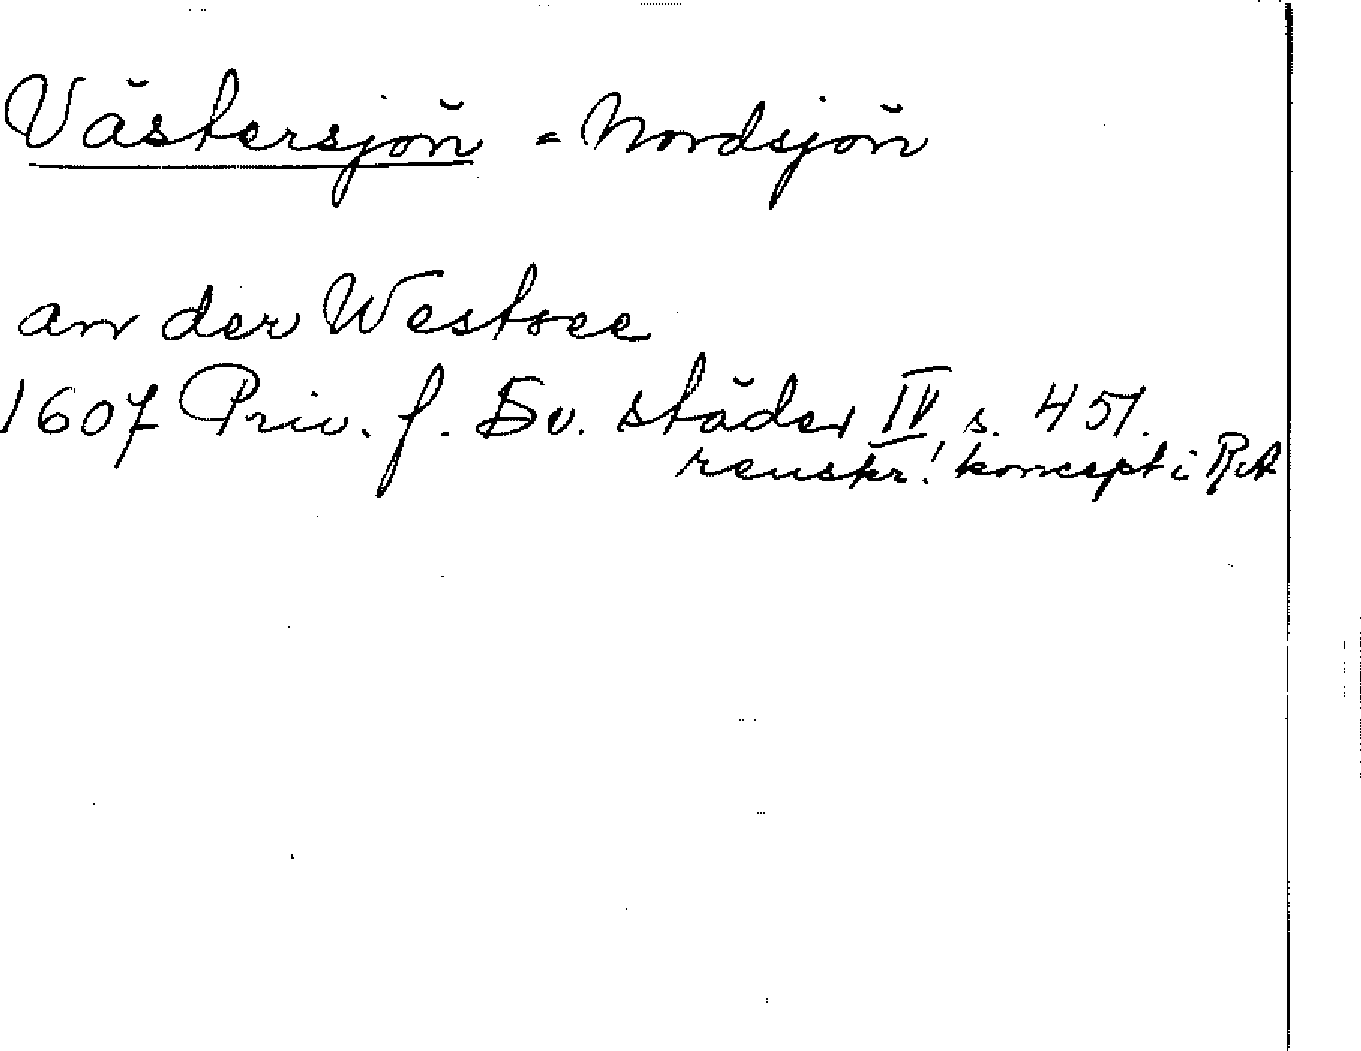 Västersjön = Nordsjön
an der Westsee
1607 Priv. f. Sv. städer IV s. 451.
renskr. koncept i RA